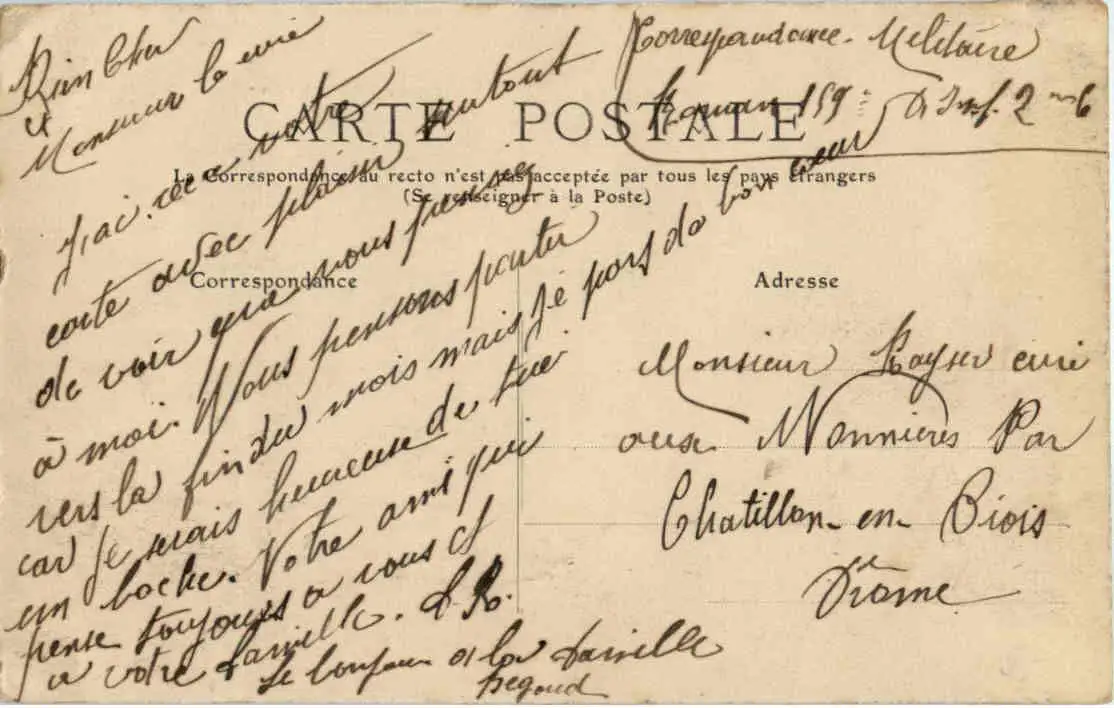 Bien Cher
Monsieur le curé
J'ai recu votre
carte avec plaisir surtout
de voir que vous pensez
à moi. Nous pensons partir
vers la fin du mois mais je pars de bon cœur
car je serais heureuse de tué
un boche. Votre ami qui
pense toujours a vous et
a votre famille. L. R.
Le bonjour a la famille
Correspondance Militaire
159e D Inf. 2
CARTE POSTALE
La Correspondance au recto n'est pas acceptée par tous les pays étrangers
(Se renseigner à la Poste)
Correspondance
Adresse
Monsieur Kayser curé
aux Nonnières Par
Chatillon-en-Diois
Drôme